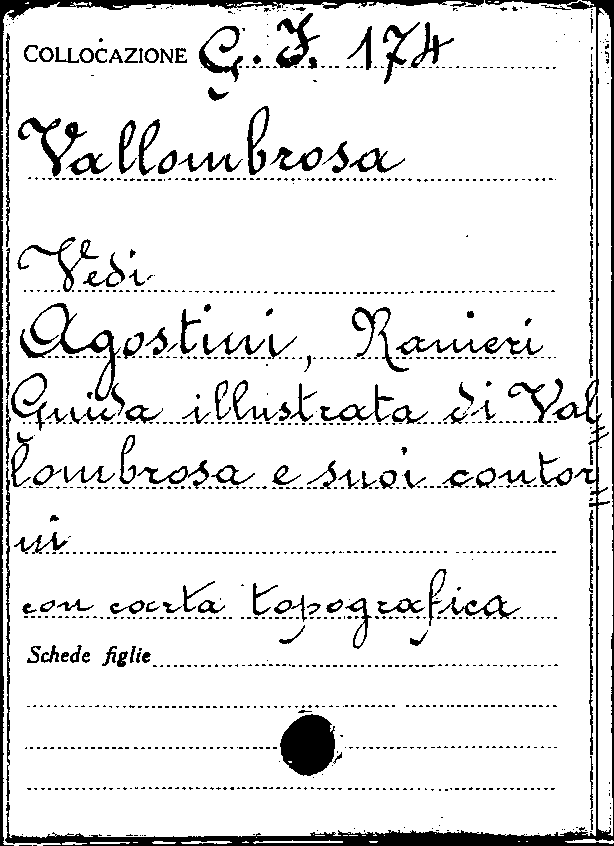 COLLOCAZIONE G. F. 174
Vallombrosa
Vedi
Agostini, Ranieri
Guida illustrata di Val=
lombrosa e suoi contor=
ni
con carta topografica
Schede figlie